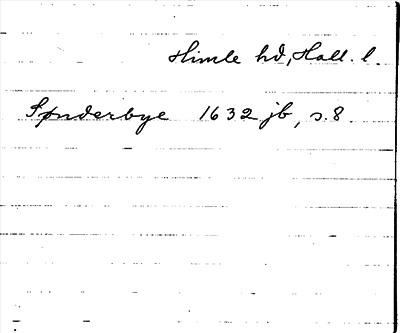 Himle hd, Hall. l.
Sønderbye 1632 jb, s. 8.